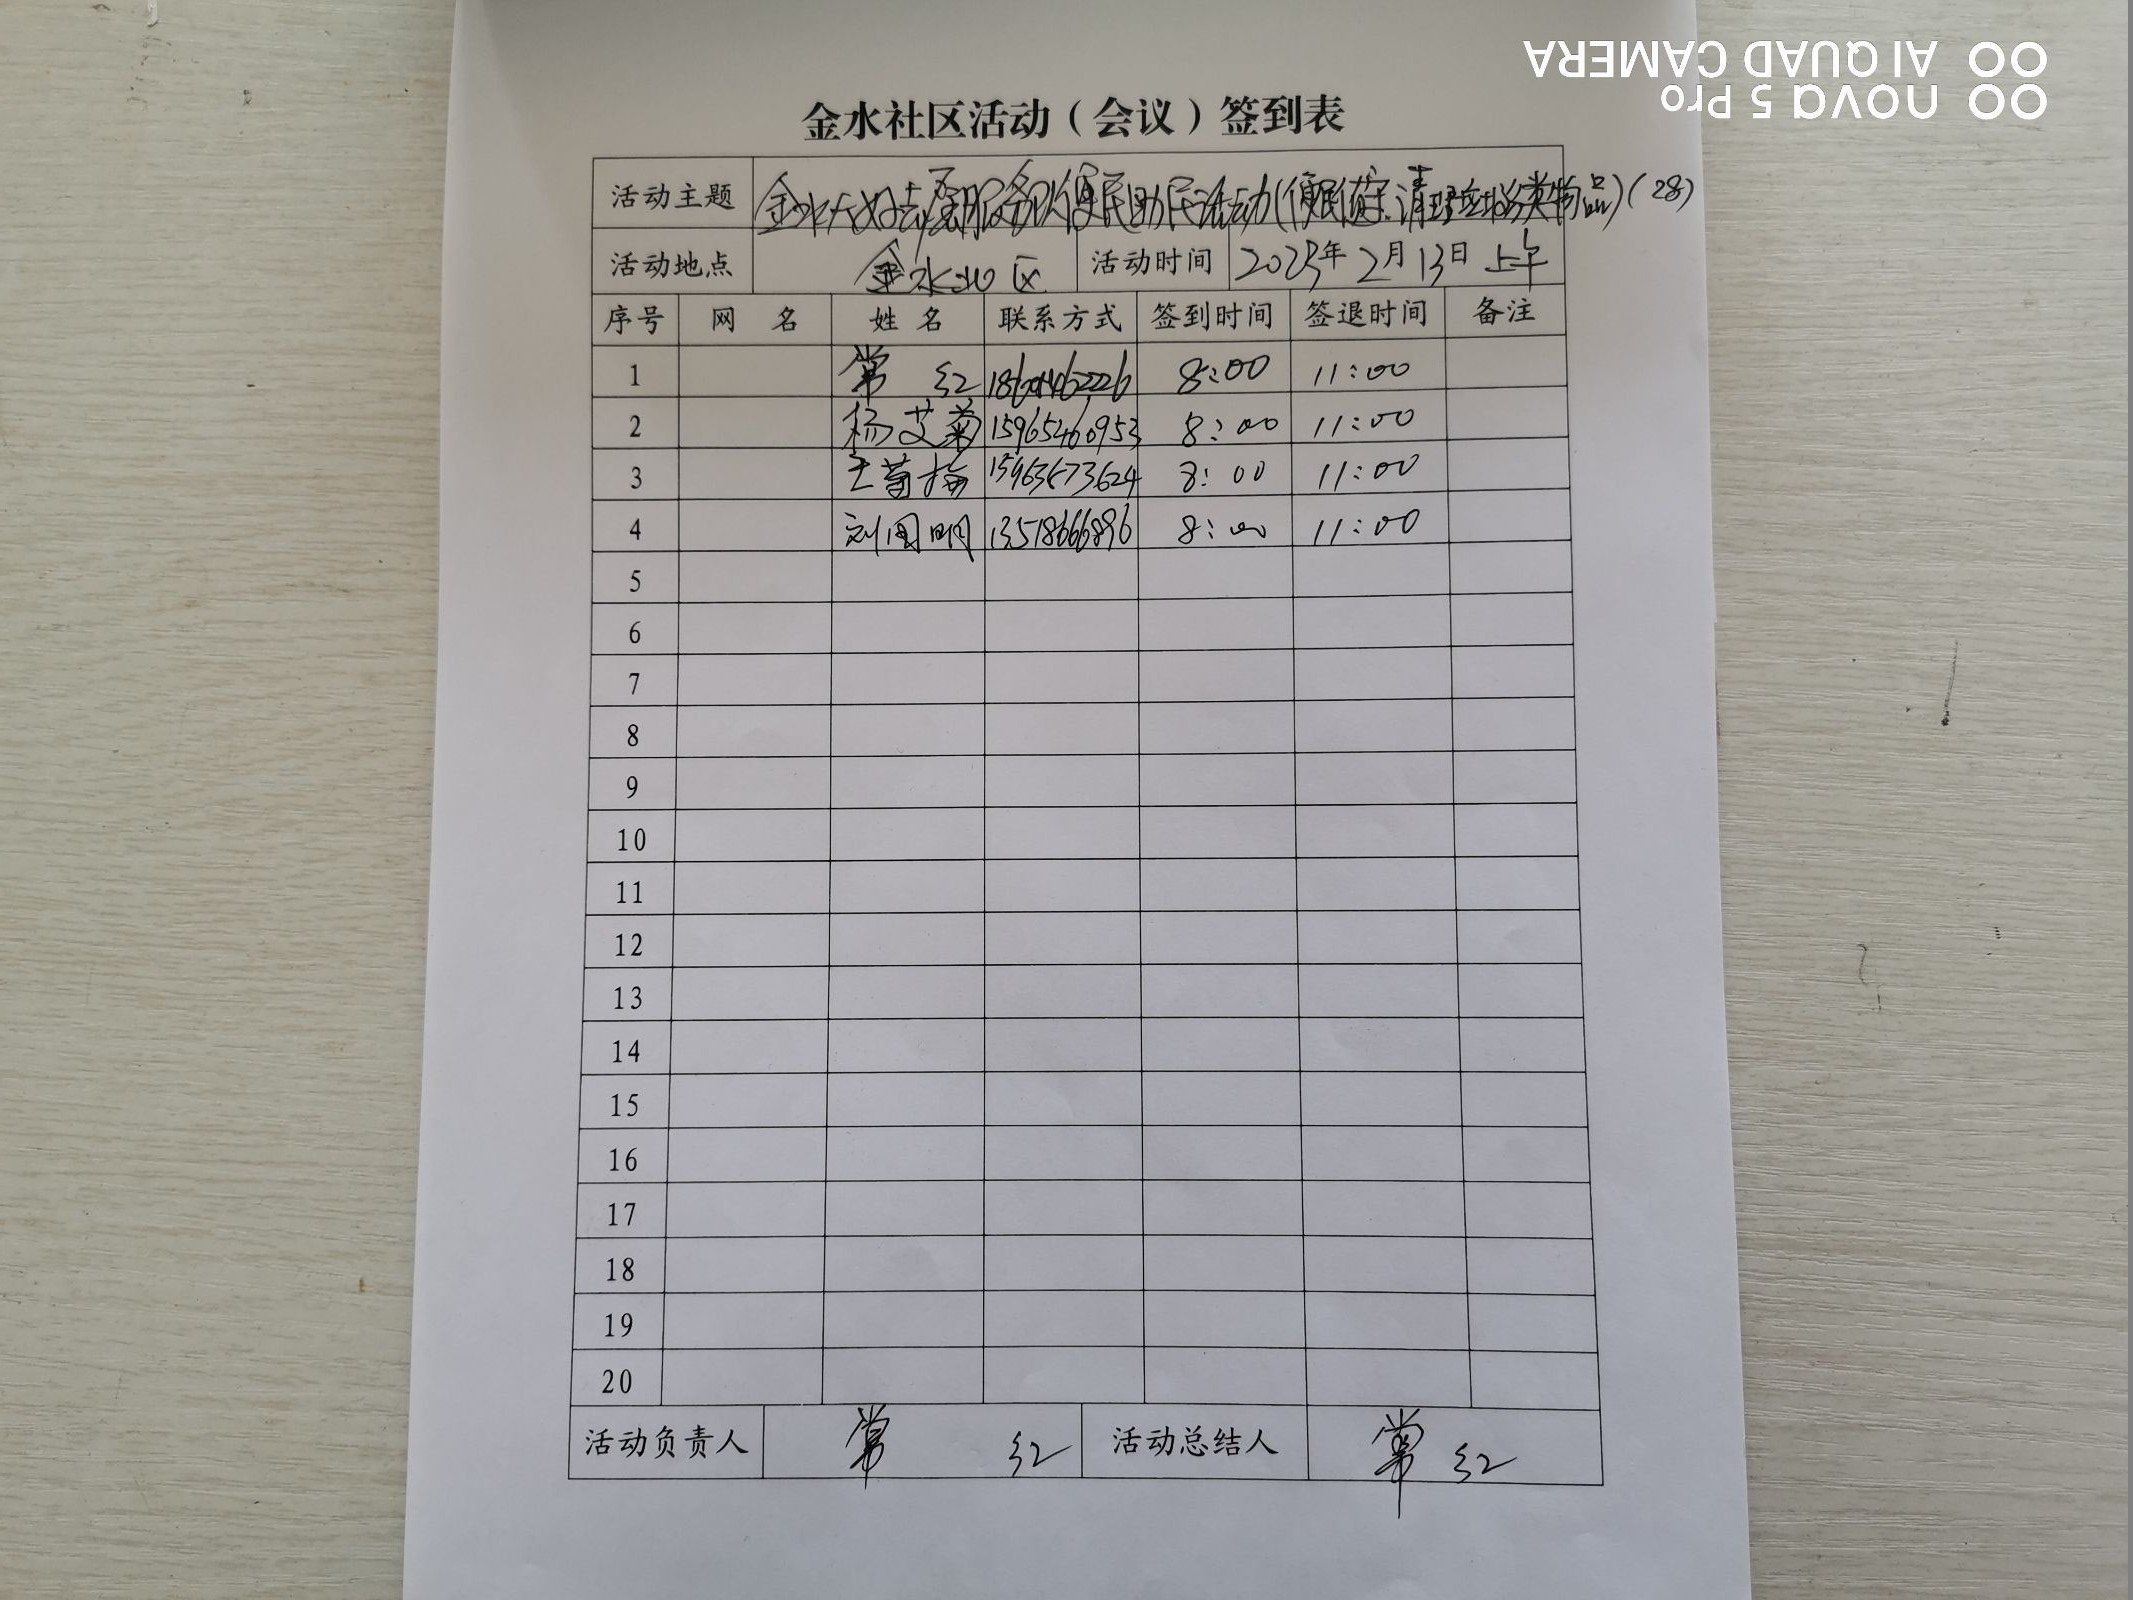 AI QUAD CAMERA
nova 5 Pro
金水社区活动（会议）签到表
活动主题 金水大好志愿服务队便民助民活动(便民值守.清理垃圾分类物品)(28)
活动地点 金水社区 活动时间 2025年2月13日上午
序号 网名 姓名 联系方式 签到时间 签退时间 备注
1 常红 8:00 11:00
2 杨艾菊 15965460953 8:00 11:00
3 王菊梅 15963573624 8:00 11:00
4 刘国明 13518666896 8:00 11:00
5
6
7
8
9
10
11
12
13
14
15
16
17
18
19
20
活动负责人 常红 活动总结人 常红